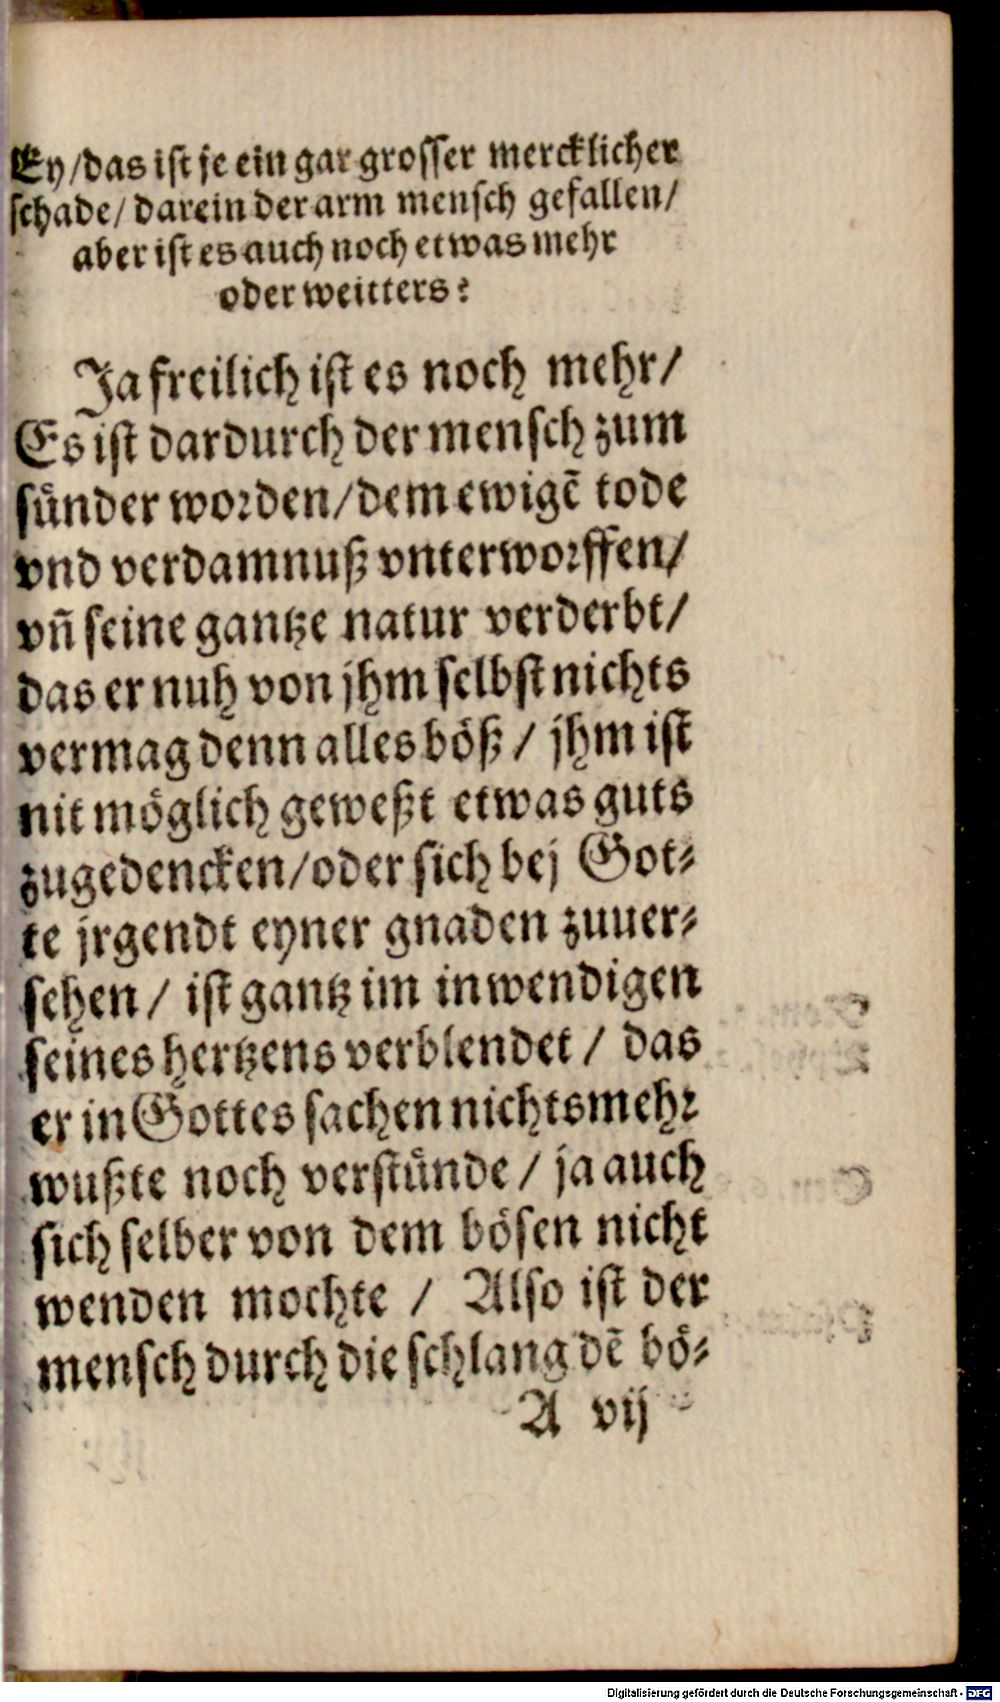 Ey/das ist je ein gar grosser mercklicher
schade/ darein der arm mensch gefallen/
aber ist es auch noch etwas mehr
oder weitters?
Ja freilich ist es noch mehr/
Es ist dardurch der mensch zum
sünder worden/dem ewigẽ tode
vnd verdamnuß vnterworffen/
vñ seine gantze natur verderbt/
das er nuh von jhm selbst nichts
vermag denn alles böß / jhm ist
nit möglich geweßt etwas guts
zugedencken/oder sich bej Got⸗
te jrgendt eyner gnaden zuuer⸗
sehen / ist gantz im inwendigen
seines hertzens verblendet / das
er in Gottes sachen nichtsmehr
wußte noch verstünde / ja auch
sich selber von dem bösen nicht
wenden mochte / Also ist der
mensch durch die schlang dẽ bö⸗
A vij
Digitalisierung gefördert durch die Deutsche Forschungsgemeinschaft - DFG